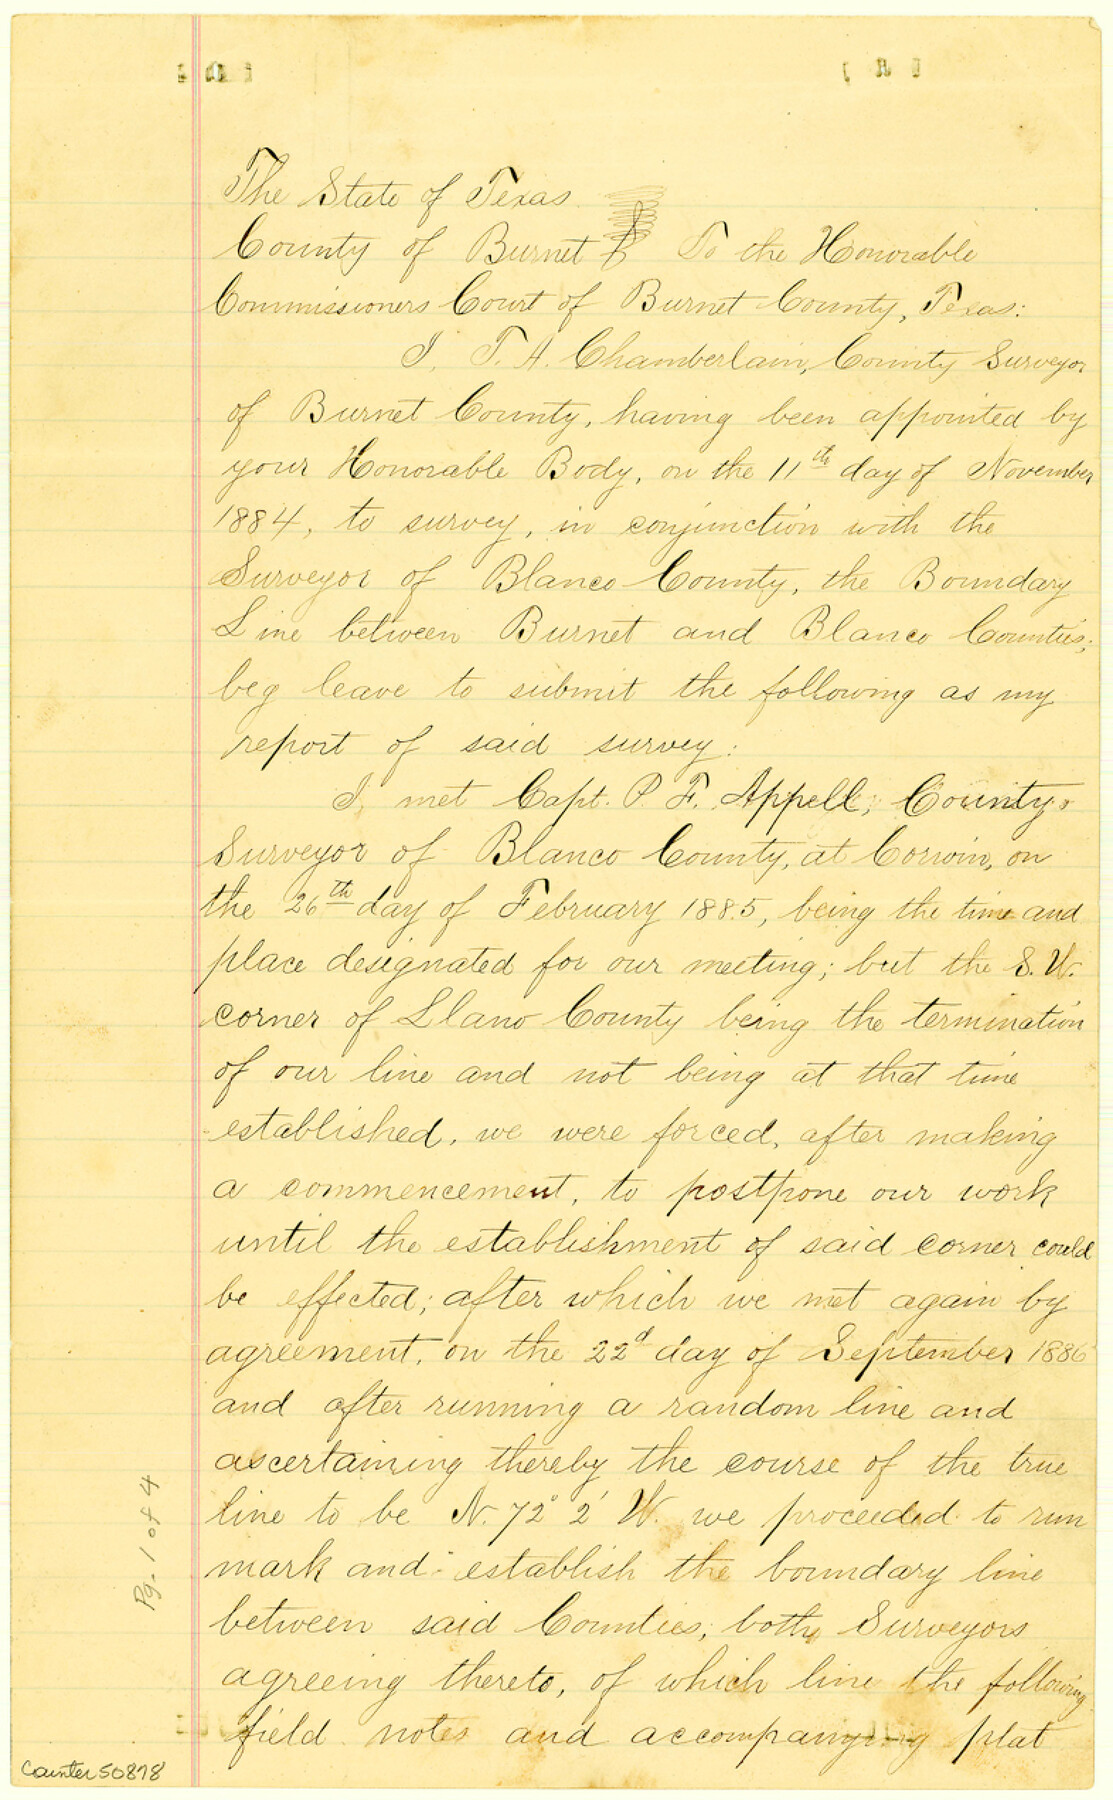 The State of Texas
County of Burnet To the Honorable
Commissioners Court of Burnet County, Texas:
I, T. A. Chamberlain, County Surveyor
of Burnet County, having been appointed by
your Honorable Body, on the 11th day of November
1884, to survey, in conjunction with the
Surveyor of Blanco County, the Boundary
Line between Burnet and Blanco Counties;
beg leave to submit the following as my
report of said survey:
I, met Capt. P. F. Appell, County
Surveyor of Blanco County, at Corwin, on
the 26th day of February 1885, being the time and
place designated for our meeting; but the S. W.
corner of Llano County being the termination
of our line and not being at that time
established, we were forced, after making
a commencement, to postpone our work
until the establishment of said corner could
be effected; after which we met again by
agreement, on the 22d day of September 1886
and after running a random line and
ascertaining thereby the course of the true
line to be N. 72° 2' W. we proceeded to run
mark and establish the boundary line
between said Counties, both Surveyors
agreeing thereto, of which line the following
field notes and accompanying plat
Pg. 1 of 4
Counter 50878